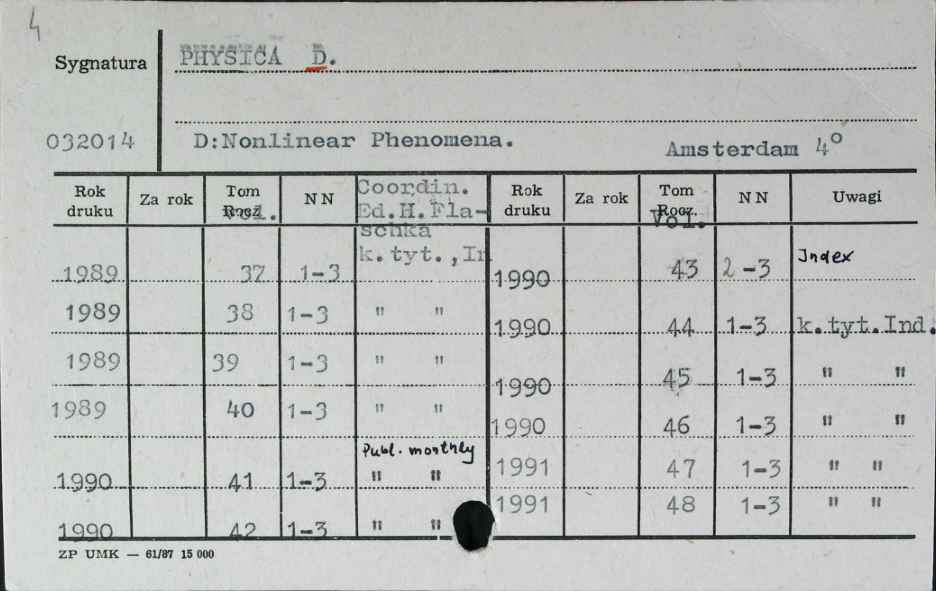 4
Sygnatura PHYSICA D.
032014 D:Nonlinear Phenomena. Amsterdam 4°
Rok druku Za rok Tom Rocz. Vol. NN Coordin. Ed.H.Fla-schka k.tyt.,In Rok druku Za rok Tom Rocz. Vol. NN Uwagi
1989 37 1-3 1990 43 2-3 Index
1989 38 1-3 " " 1990 44 1-3 k.tyt.Ind.
1989 39 1-3 " " 1990 45 1-3 " "
1989 40 1-3 " " 1990 46 1-3 " "
Publ. monthly
1990 41 1-3 " " 1991 47 1-3 " "
1990 42 1-3 " " 1991 48 1-3 " "
ZP UMK — 61/87 15 000